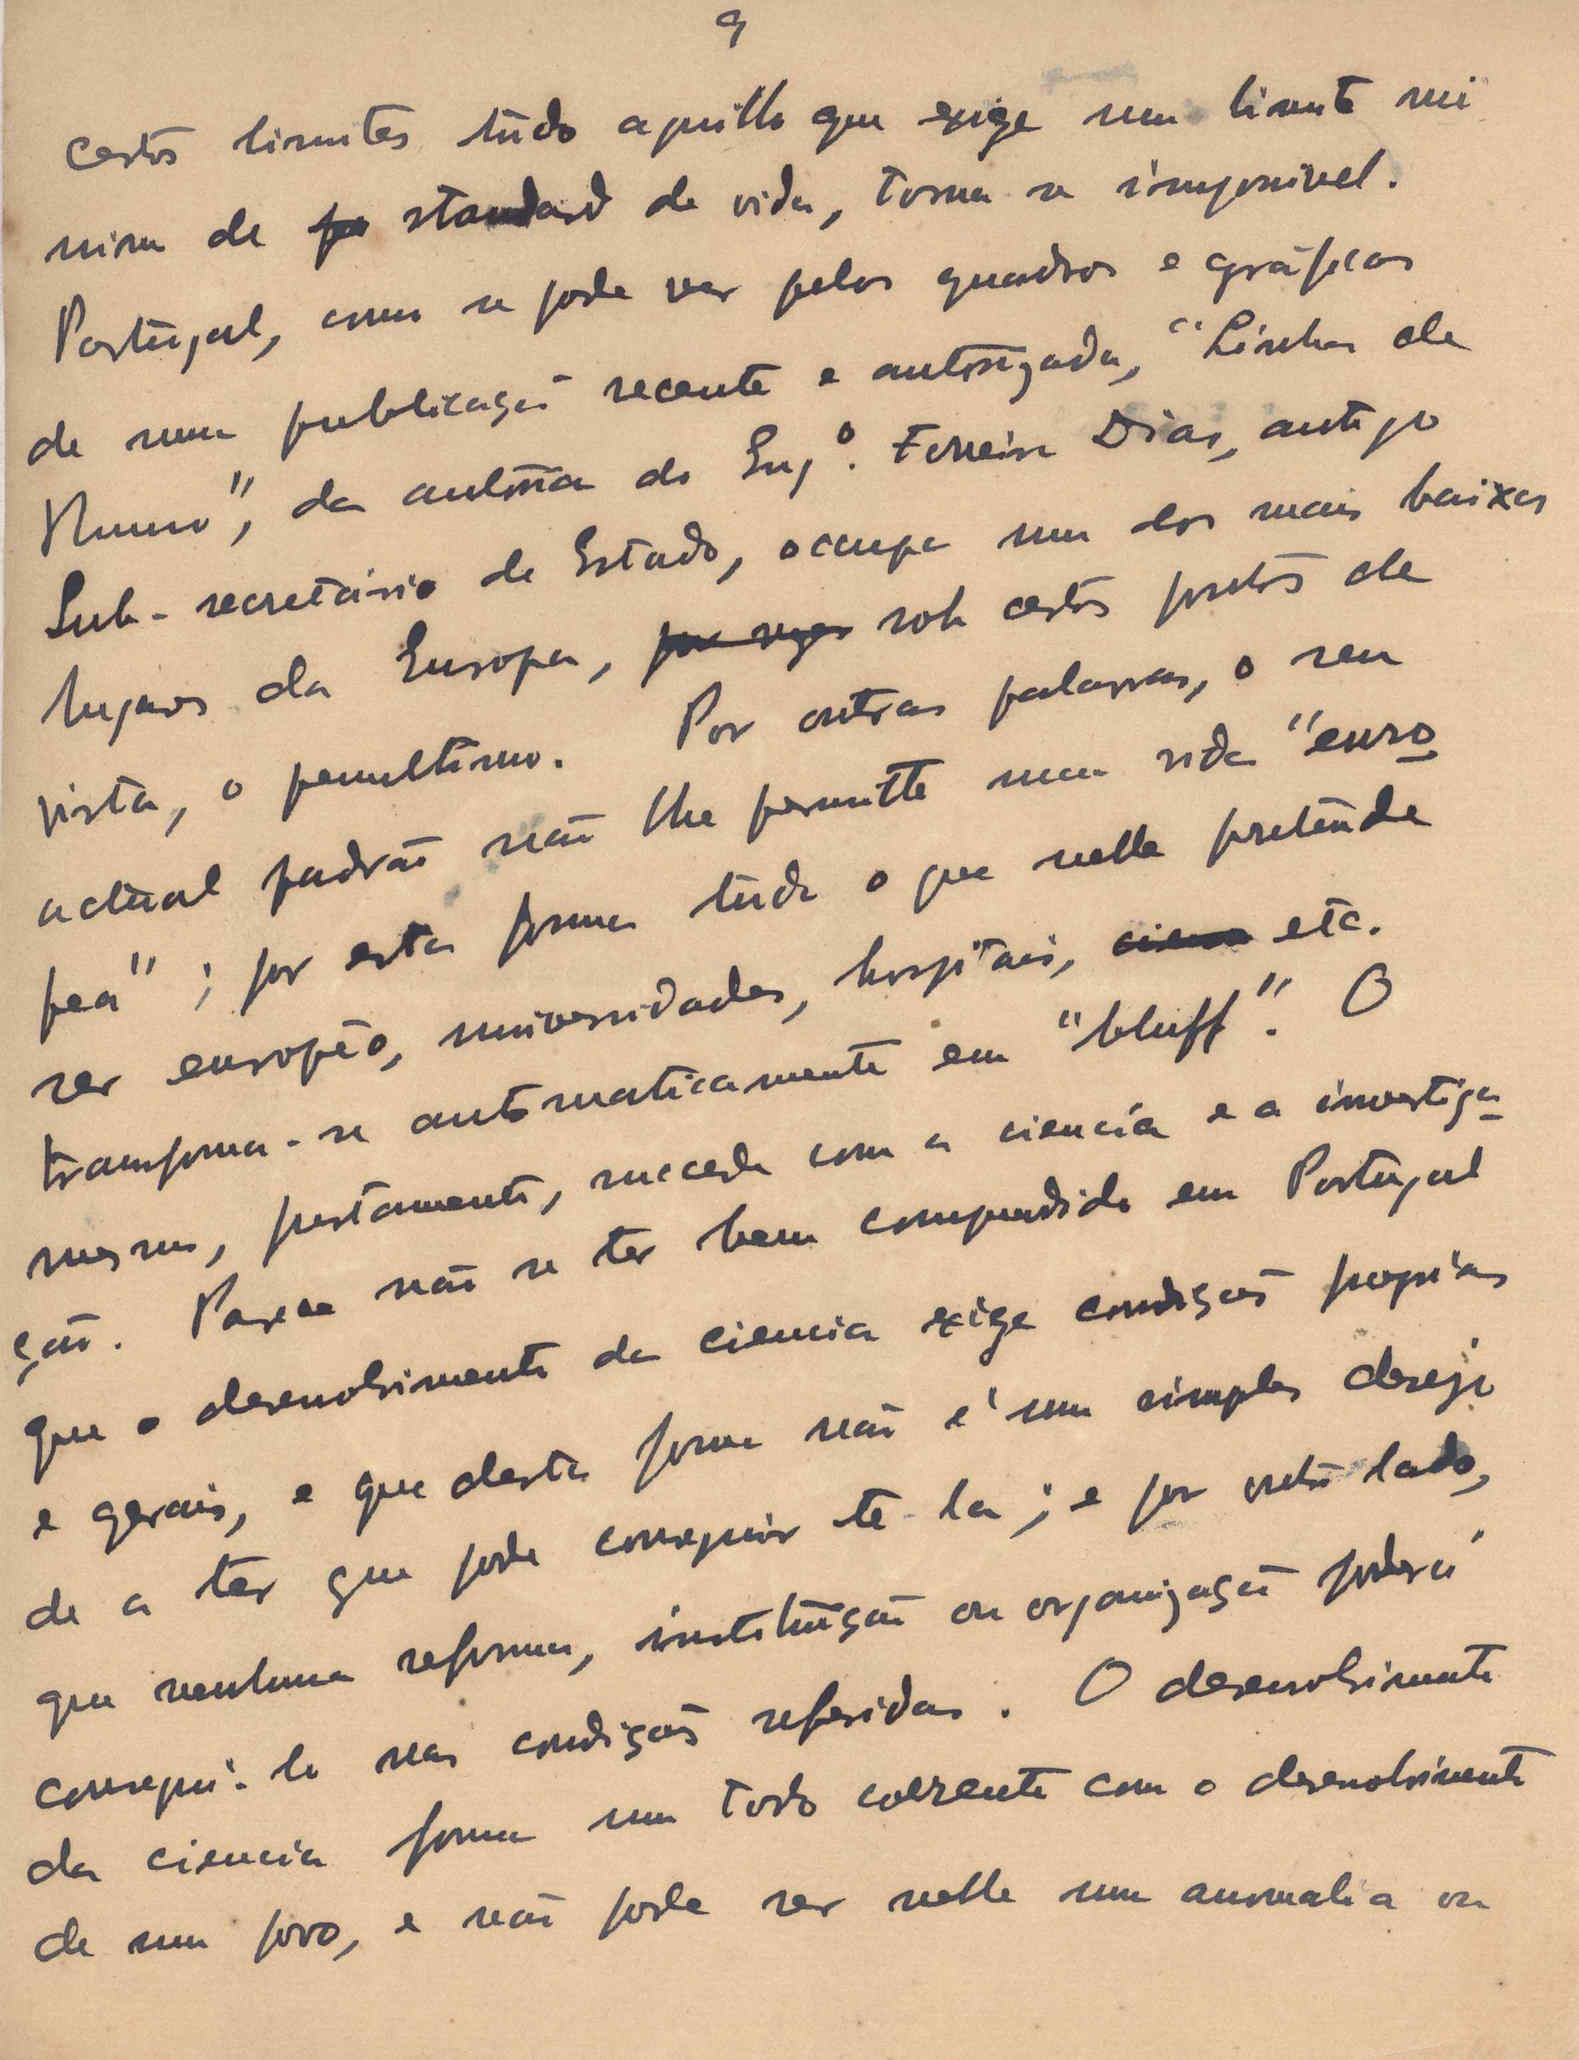 9
certos limites tudo aquillo que exige um limite mi
nimo de standard de vida, torna se impossivel.
Portugal, como se pode ver pelos quadros e gráficos
de uma publicação recente e autorizada, "Linha de
Rumo", da autoria do Engº. Ferreira Dias, antigo
Sub-secretário de Estado, occupa um dos mais baixos
lugares da Europa, sob certos pontos de
vista, o penultimo. Por outras palavras, o seu
actual padrão não lhe permitte uma vida "euro
pea"; por esta forma tudo o que nelle pretende
ser europêo, universidades, hospitais, etc.
transforma-se automaticamente em "bluff". O
mesmo, justamente, succede com a ciencia e a investiga
ção. Parece não se ter bem comprendido em Portugal
que o desenvolvimento da ciencia exige condições proprias
e gerais, e que desta forma não é um simples desejo
de a ter que pode conseguir te-la; e por outro lado,
que nenhuma reforma, instituição ou organização poderá
consegui-lo nas condições referidas. O desenvolvimento
da ciencia forma um todo coerente com o desenvolvimento
de um povo, e não pode ser nelle uma anomalia ou